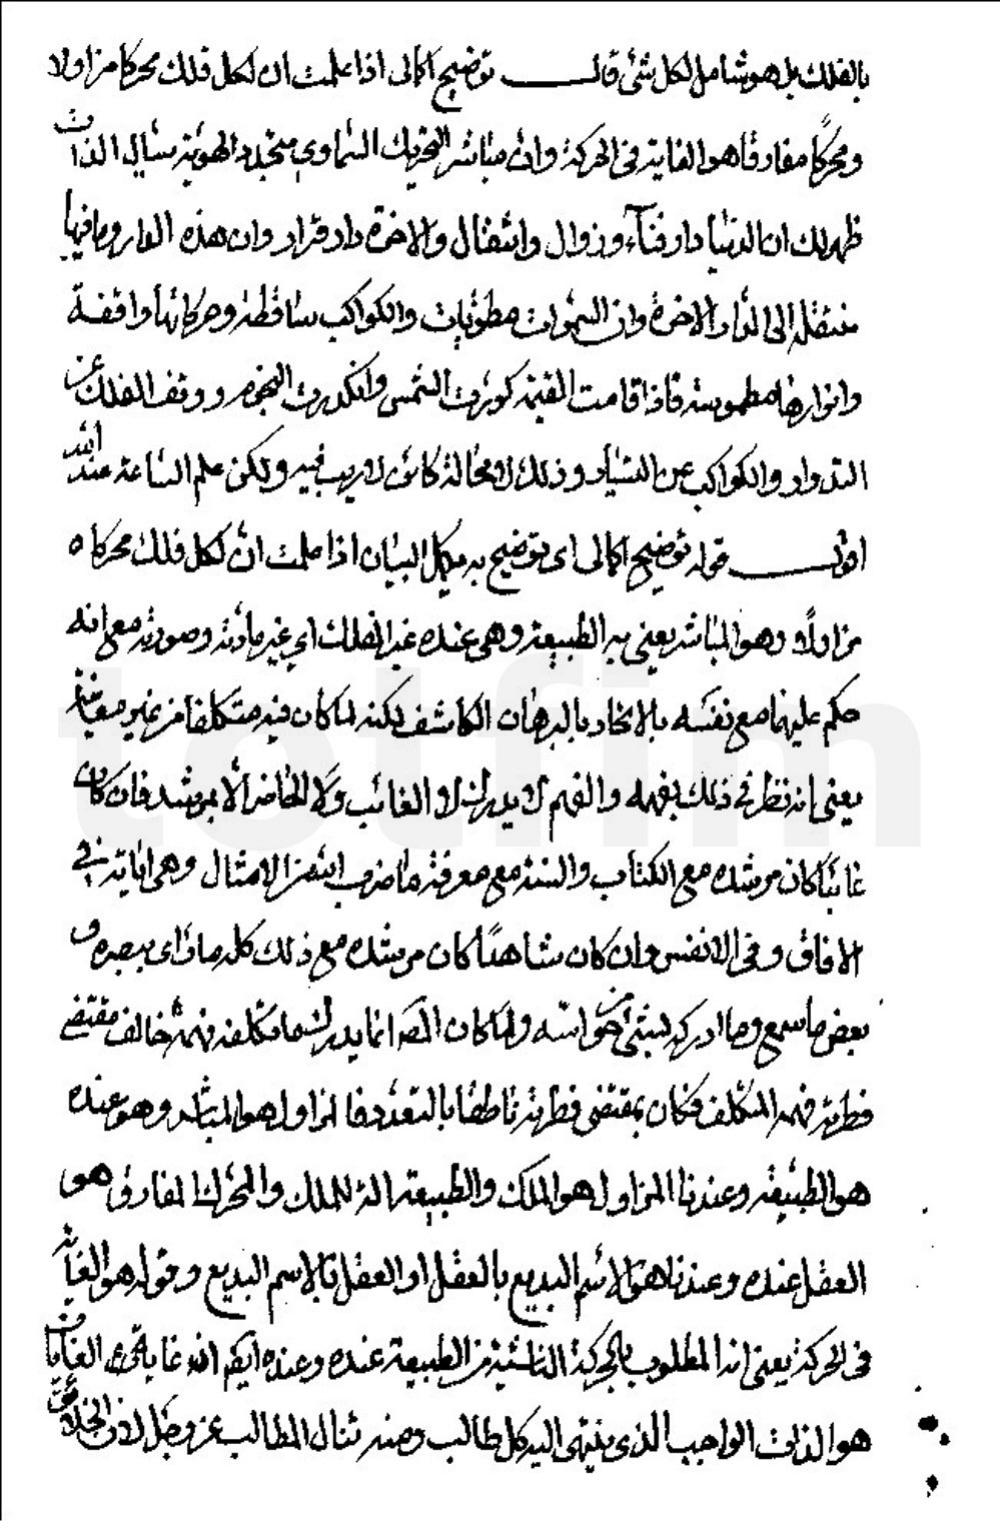 بالفلك بل هو شامل لكل شئ قال توضيح اكمالى اذا علمت ان لكل فلك محركا مزاولا
ومحركا مفارقا هو الغاية فى الحركة وان مباشر التحريك السماوى متجدد الهوية سيال الذات
ظهر لك ان الدنيا دار فناء وزوال وانتقال والاخرة دار قرار وان هذه الدار وما فيها
منتقلة الى الدار الاخرة وان السموات مطويات والكواكب ساقطة وحركاتها واقفة
وانوارها مطموسة فاذا قامت القيمة كورت الشمس وانكدرت النجوم ووقف الفلك عن
الدوار والكواكب عن السيار وذلك لا محالة كائن لا ريب فيه ولكن علم الساعة عند الله
اقول قوله توضيح اكمالى اى توضيح به يكمل البيان اذا علمت ان لكل فلك محركا ه
مزاولا وهو المباشر يعنى به الطبيعة وهى عنده غير الفلك اى غير مادته وصورته مع انه
حكم عليها مع نفسه بالاتحاد بالبرهان الكاشف لكنه لما كان فيه متكلفا من غير معاينة
يعنى انه نظر فى ذلك بفهمه والفهم لا يدرك لا الغائب ولا الحاضر الا بمرشد فان كان
غائبا كان مرشده مع الكتاب والسنة مع معرفة ما ضرب الله من الامثال وهى اياته فى
الافاق وفى الانفس وان كان شاهدا كان مرشده مع ذلك كله ما راى ببصره و
بعض ما سمع وما ادركه بشئ من حواسه ولما كان المصه انما يدرك ما متكلفه فهمه خالف مقتضى
فطرته فهمه المتكلف فكان بمقتضى فطرته ناطقا بالتعدد فالمزاول هو المباشر وهو عنده
هو الطبيعة وعندنا المزاول هو الملك والطبيعة الة للملك والمحرك المفارق هو
العقل عنده وعندنا هو الاسم البديع بالعقل او العقل بالاسم البديع وقوله هو الغاية
فى الحركة يعنى انه المطلوب بالحركة الناشئة من الطبيعة عنده وعنده ايضا انه غاية فى الغايات
هو الذات الواجب الذى ينتهى اليه كل طالب ومنه تنال المطالب عز وجل لان الخلائق